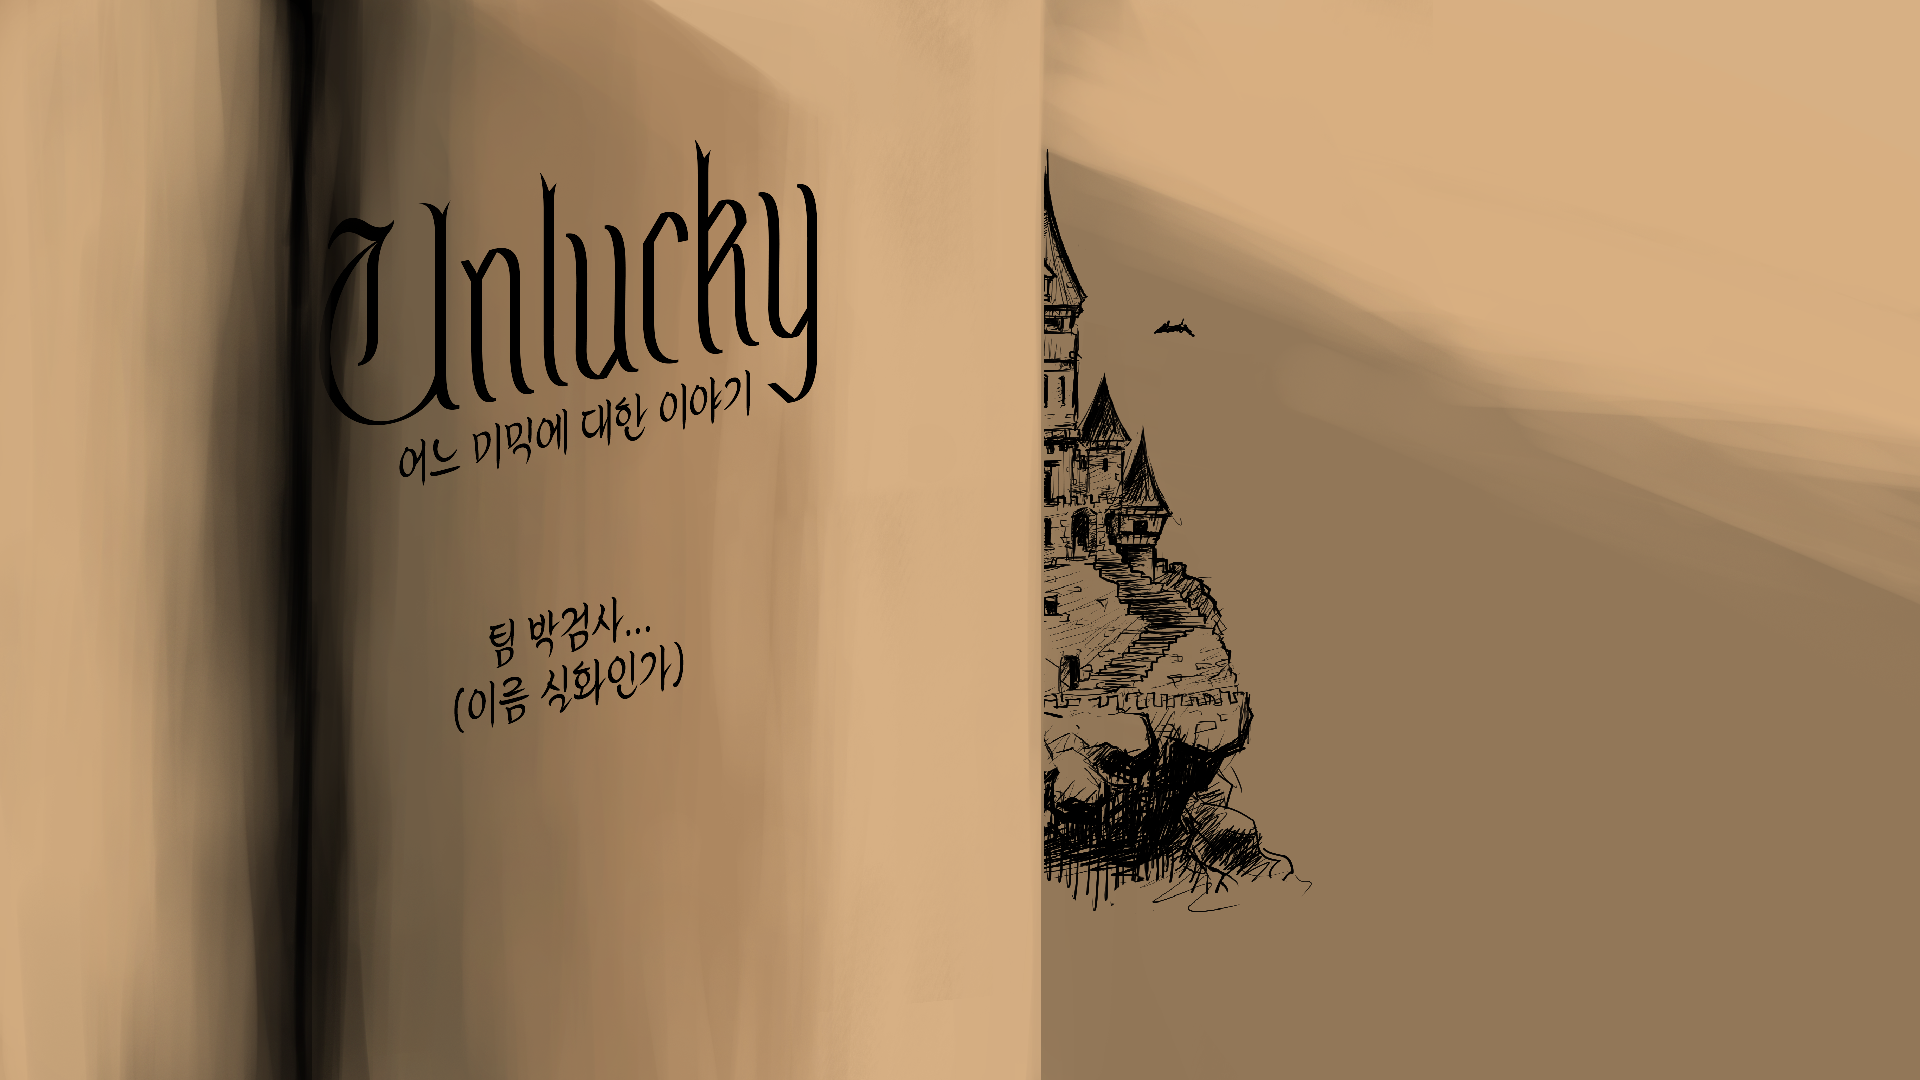 Unlucky
어느 미믹에 대한 이야기
팀 박검사...
(이름 실화인가)